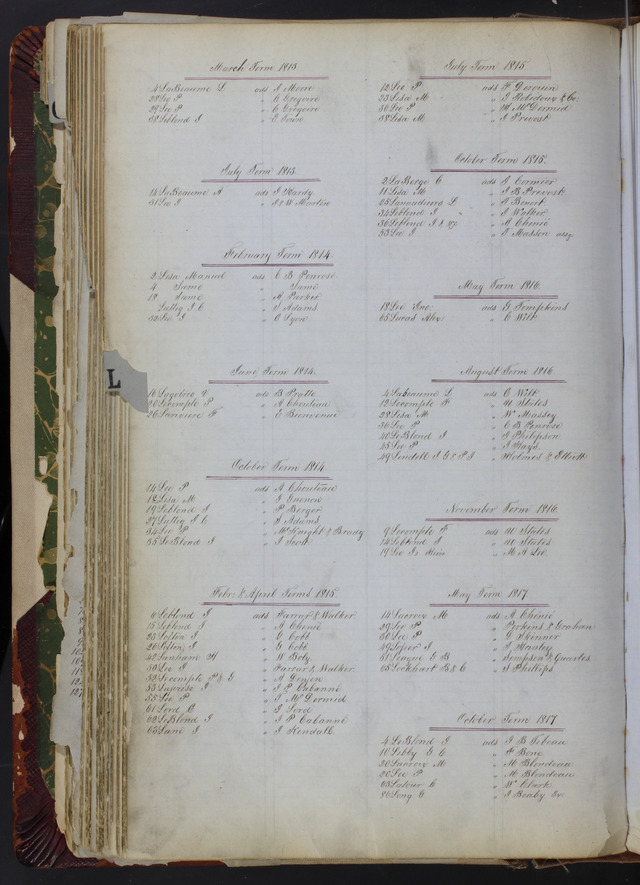 March Term 1813.
4 LaBeaume L ads J Moore
28 Lee P " C Gregoire
29 Lee P " C Gregoire
38 Leblond J "
July Term 1813.
14 LaBeaume A ads J Hardy
31 Lee J " J & W
February Term 1814.
2 Lisa Manuel ads C B Penrose
4 Same " Same
18 Same " A Parker
Luttig J C " S Adams
32 Lee J " C Lyon
L
June Term 1814.
16 ads B Pratte
20 Lecompte P " A Chouteau
26 F " E Bienvenue
October Term 1814.
14 Lee P ads A Chouteau
18 Lisa M " J
19 Leblond J " P Berger
27 Luttig J C " S Adams
34 Lee P " McKnight & Brady
55 LeBlond J " J Scott
Febr. & April Terms 1815.
6 Leblond J ads Farrar & Walker
15 Leblond J " A Chenie
23 Lofton J " G Cobb
26 Lofton J " G Cobb
42 Lanham H " W
50 Lee J " Farrar & Walker
52 Lecompte P & G " A
53 Laprise J " J P Cabanne
55 Lee P " J McDermid
61 Lord C " L Lord
62 LeBlond J " J P Cabanne
63 Lane J " J Kendall
July Term 1815
12 Lee P ads F Derouin
23 Lisa M " J Robidoux & Co.
30 Lee P " M McDermid
38 Lisa M " J Prevost
October Term 1815.
2 LaBarge C ads G Cormier
11 Lisa M " J B Prevost
25 Lamaudiere L " F Benoit
34 Leblond J " J Walker
36 Leblond J & wf. " A Chenie
53 Lee J " J Masson assg.
May Term 1816.
18 Lee Jno: ads G Tompkins
65 Lucas Alex. " C Wilt
August Term 1816.
4 LaBeaume L ads C Wilt
12 Lecompte F " U States
28 Lisa M " Wm Massey
36 Lee P " C B Penrose
40 LeBlond J " J Philipson
45 Lee P " J Hays
49 Lindell J G & P J " Holmes & Elliott
November Term 1816.
9 Lecompte F ads U States
14 Leblond J " U States
19 Lee Jr. " M A Lee.
May Term 1817.
14 Lacroix M ads A Chenie
29 Lee P " Perkins & Graham
30 Lee P " G Skinner
49 J " J Manley
51 League E B " Simpson & Quarles
65 Lockhart B & C " J Phillips
October Term 1817
4 LeBlond J ads J B Tebeau
10 Libby E C " F Bone
20 Lacroix M " M Blondeau
20 Lee P " M Blondeau
65 Latour C " Wm Clark
86 Long G " J Brady Sr.